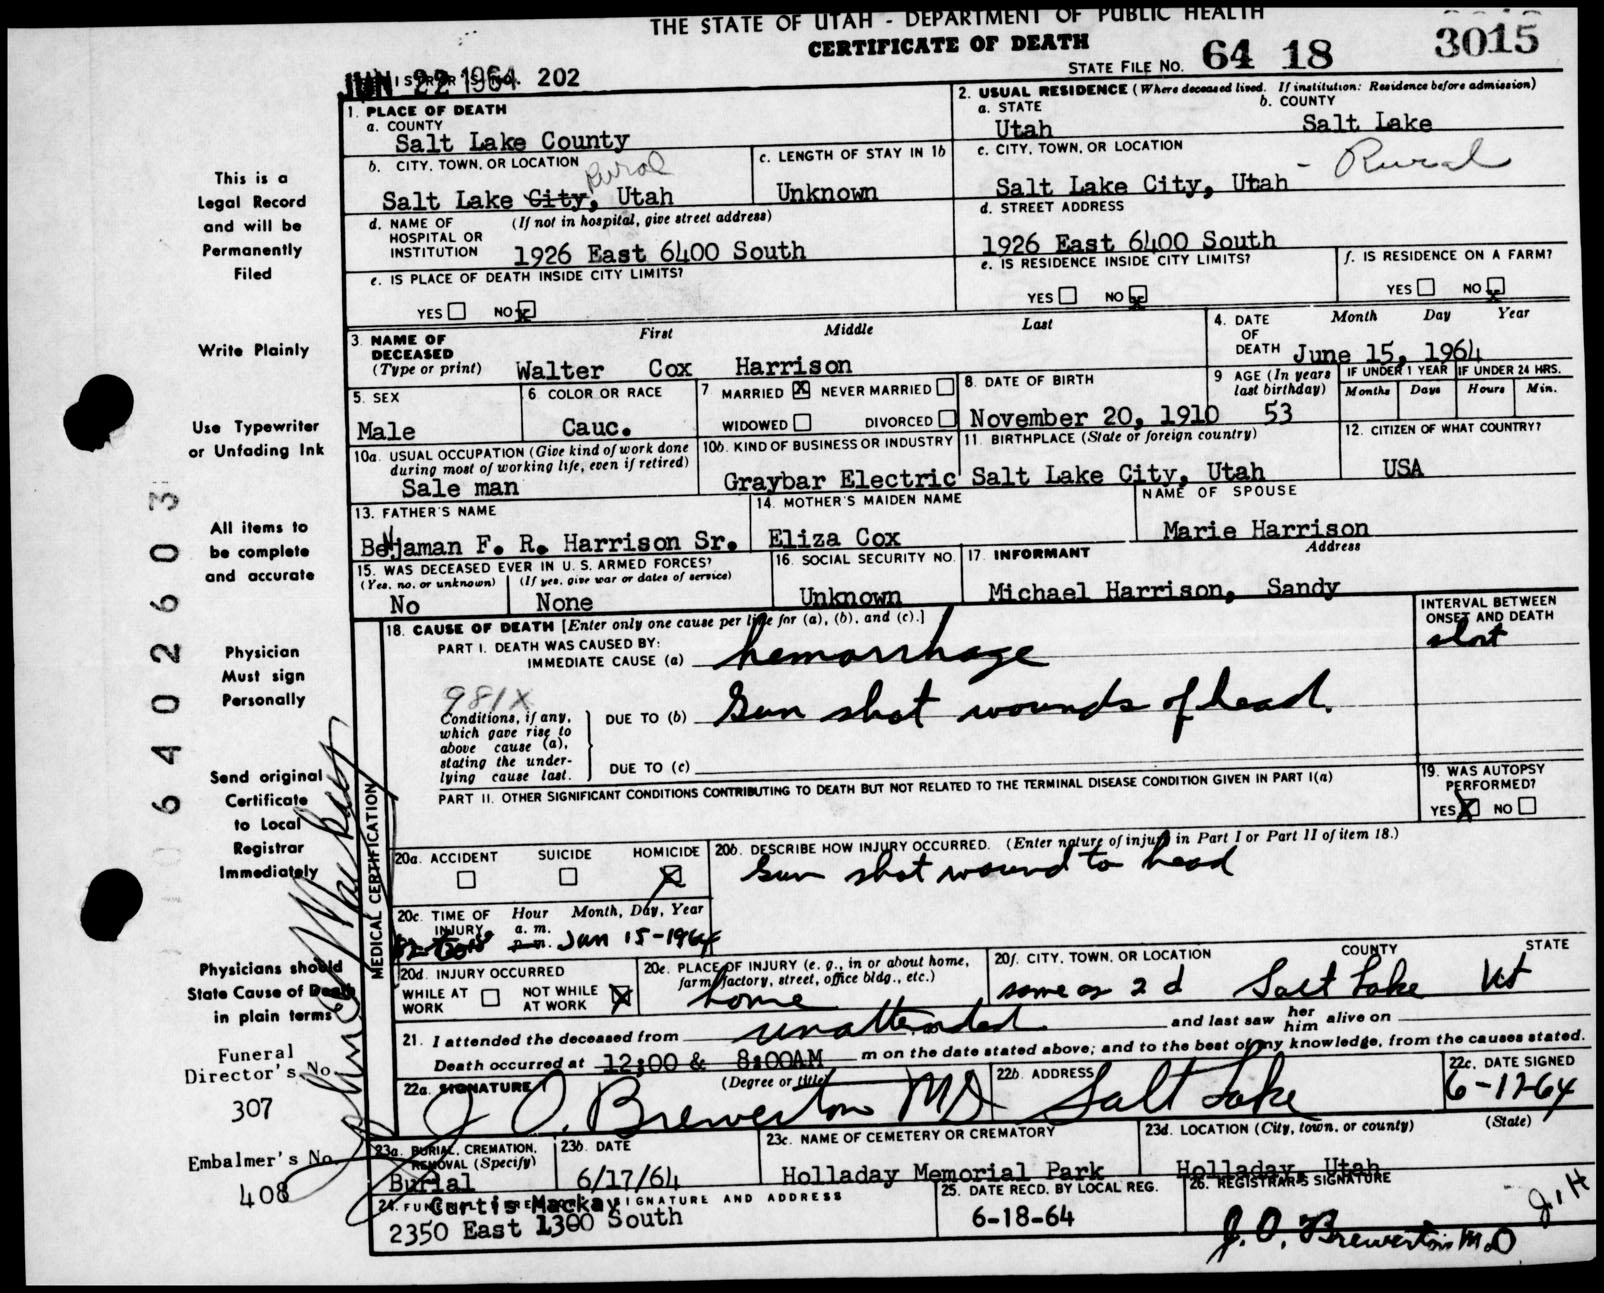 THE STATE OF UTAH - DEPARTMENT OF PUBLIC HEALTH
CERTIFICATE OF DEATH
STATE FILE NO. 64 18 3015
JUN 22 1964 202
1. PLACE OF DEATH
a. COUNTY
Salt Lake County
b. CITY, TOWN, OR LOCATION
Rural
Salt Lake City, Utah
c. LENGTH OF STAY IN 1b
Unknown
d. NAME OF HOSPITAL OR INSTITUTION
(If not in hospital, give street address)
1926 East 6400 South
e. IS PLACE OF DEATH INSIDE CITY LIMITS?
YES NO x
2. USUAL RESIDENCE (Where deceased lived. If institution: Residence before admission)
a. STATE
Utah
b. COUNTY
Salt Lake
c. CITY, TOWN, OR LOCATION
Salt Lake City, Utah - Rural
d. STREET ADDRESS
1926 East 6400 South
e. IS RESIDENCE INSIDE CITY LIMITS?
YES NO x
f. IS RESIDENCE ON A FARM?
YES NO x
3. NAME OF DECEASED
(Type or print)
First Middle Last
Walter Cox Harrison
4. DATE OF DEATH
Month Day Year
June 15, 1964
5. SEX
Male
6. COLOR OR RACE
Cauc.
7. MARRIED X NEVER MARRIED
WIDOWED DIVORCED
8. DATE OF BIRTH
November 20, 1910
9. AGE (In years last birthday)
53
IF UNDER 1 YEAR
Months Days
IF UNDER 24 HRS.
Hours Min.
10a. USUAL OCCUPATION (Give kind of work done during most of working life, even if retired)
Sale man
10b. KIND OF BUSINESS OR INDUSTRY
Graybar Electric
11. BIRTHPLACE (State or foreign country)
Salt Lake City, Utah
12. CITIZEN OF WHAT COUNTRY?
USA
13. FATHER'S NAME
BeNjaman F. R. Harrison Sr.
14. MOTHER'S MAIDEN NAME
Eliza Cox
NAME OF SPOUSE
Marie Harrison
15. WAS DECEASED EVER IN U. S. ARMED FORCES?
(Yes, no, or unknown) (If yes, give war or dates of service)
No None
16. SOCIAL SECURITY NO.
Unknown
17. INFORMANT Address
Michael Harrison, Sandy
MEDICAL CERTIFICATION
18. CAUSE OF DEATH [Enter only one cause per line for (a), (b), and (c).]
INTERVAL BETWEEN ONSET AND DEATH
PART I. DEATH WAS CAUSED BY:
IMMEDIATE CAUSE (a) hemorrhage
short
981X
Conditions, if any, which gave rise to above cause (a), stating the underlying cause last.
DUE TO (b) Gun shot wounds of head.
DUE TO (c)
PART II. OTHER SIGNIFICANT CONDITIONS CONTRIBUTING TO DEATH BUT NOT RELATED TO THE TERMINAL DISEASE CONDITION GIVEN IN PART I(a)
19. WAS AUTOPSY PERFORMED?
YES X NO
20a. ACCIDENT SUICIDE HOMICIDE X
20b. DESCRIBE HOW INJURY OCCURRED. (Enter nature of injury in Part I or Part II of item 18.)
Gun shot wound to head
20c. TIME OF INJURY
Hour Month, Day, Year
a. m.
p. m. Jun 15-1964
20d. INJURY OCCURRED
WHILE AT WORK NOT WHILE AT WORK X
20e. PLACE OF INJURY (e. g., in or about home, farm, factory, street, office bldg., etc.)
home
20f. CITY, TOWN, OR LOCATION COUNTY STATE
same as 2 d Salt Lake Ut
21. I attended the deceased from unattended and last saw her him alive on
Death occurred at 12:00 & 8:00AM m on the date stated above; and to the best of my knowledge, from the causes stated.
22a. SIGNATURE (Degree or title)
J O. Brewerton MD
22b. ADDRESS
Salt Lake
22c. DATE SIGNED
6-17-64
23a. BURIAL, CREMATION, REMOVAL (Specify)
Burial
23b. DATE
6/17/64
23c. NAME OF CEMETERY OR CREMATORY
Holladay Memorial Park
23d. LOCATION (City, town, or county) (State)
Holladay, Utah
24. FUNERAL DIRECTOR'S SIGNATURE AND ADDRESS
Curtis Mackay
2350 East 1300 South
25. DATE RECD. BY LOCAL REG.
6-18-64
26. REGISTRAR'S SIGNATURE
J. O. Brewerton M.D
This is a
Legal Record
and will be
Permanently
Filed
Write Plainly
Use Typewriter
or Unfading Ink
All items to
be complete
and accurate
Physician
Must sign
Personally
Send original
Certificate
to Local
Registrar
Immediately
Physicians should
State Cause of Death
in plain terms
Funeral
Director's No.
307
Embalmer's No.
408
6402603